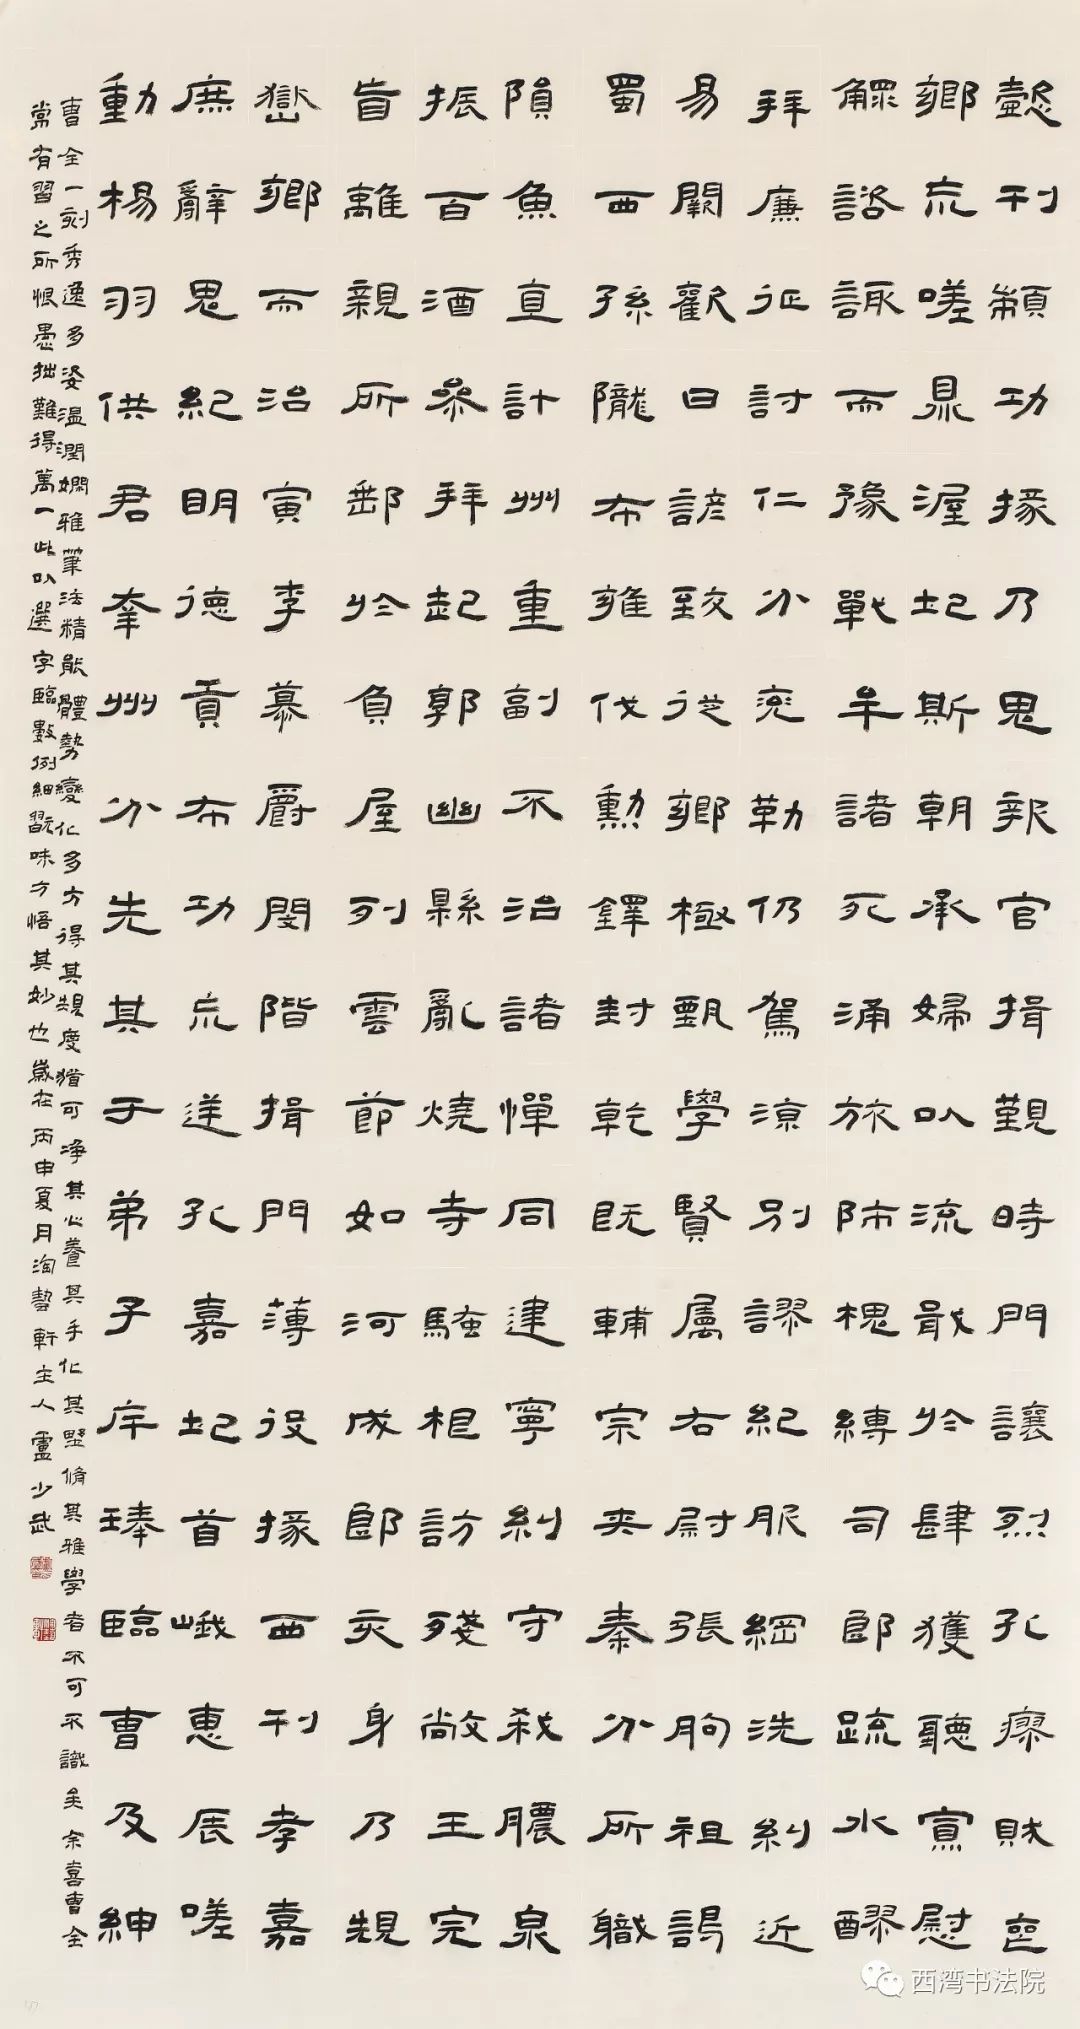 懿刊顙功掾乃思報官揖艱時門讓烈孔瘳財
鄉荒嗟鼎渥圮斯朝承婦以流戢於肆獲聽實慰
諮諏而豫戰牟諸死涌旅陈槐縛司郎疏水醪
拜廉征討仁分兗勒仍駕涼別謬紀服綱洗糾近
易闕歡曰諺致從鄉極甄學賢屬右尉張朐祖謁
蜀西孫隴布雍伐勳鐸封乾既輔宗夾秦分所職
隕魚直計州重副不治諸憚同建寧糾守殺膿泉
振百酒參拜起郭幽縣亂燒寺騷相訪殘敞王完
盲離親所郵於負屋列雲節如河成郎亥身乃規
嶽鄉而治寅李慕爵閔階揖門薄役掾西刊孝嘉
庶辭思紀明德貢布功荒逆孔嘉圮首峨惠辰嗟
動楊羽供君奉州分先其于弟子序臻臨曹及紳
書全一刻秀逸多姿溫潤嫻雅筆法精能體勢變化多方得其規度猶可淨其心養其手化其堅脩其雅學者不可不識矣余喜曹全
常有習之所恨愚拙難得萬一此以選字臨數例細翫味方悟其妙也歲在丙申夏月淘藝軒主人盧少武
西湾书法院